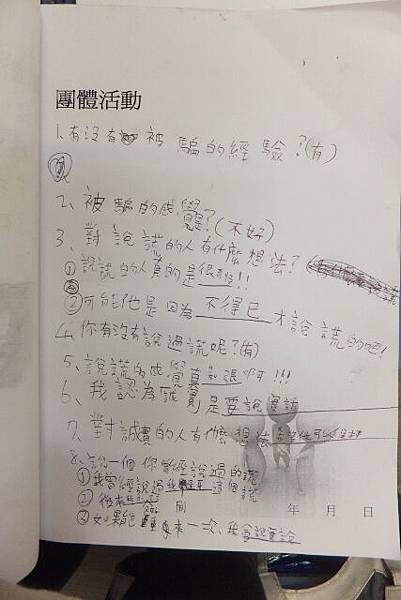 團體活動
1、有沒有被騙的經驗?(有)
2、被騙的感覺?(不好)
3、對說謊的人有什麼想法?
①說謊的人真的是很
②可能他是因為不得已才說謊的吧!
4、你有沒有說過謊呢?(有)
5、說謊的感覺真 張啊!!!
6、我認為誠實是要說實話
7、對誠實的人有什麼想法
8、說一個你曾經說過的謊
①我曾經說過 這個謊
②後來
③如果能重來一次、我會說實話
年 月 日